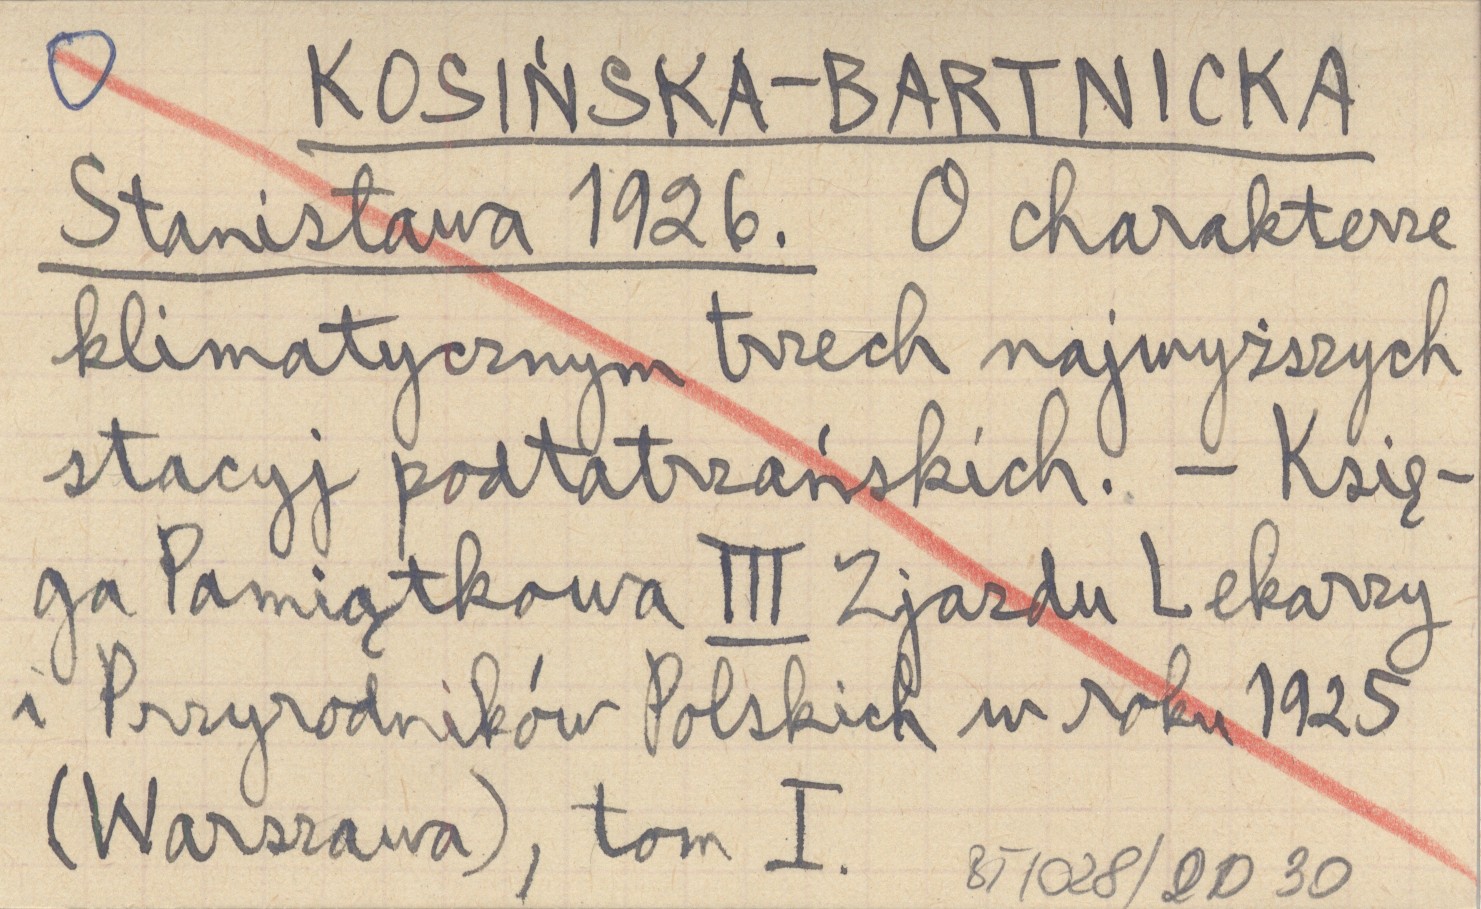 KOSIŃSKA-BARTNICKA
Stanisława 1926. O charakterze
klimatycznym trzech najwyższych
stacyj podtatrzańskich. - Księ-
ga Pamiątkowa III Zjazdu Lekarzy
i Przyrodników Polskich w roku 1925
(Warszawa), tom I.
BT/028/2D 30